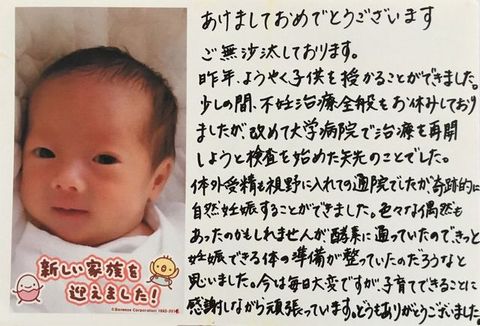 あけましておめでとうございます
ご無沙汰しております。
昨年、ようやく子供を授かることができました。
少しの間、不妊治療全般をお休みしており
ましたが改めて大学病院で治療を再開
しようと検査を始めた矢先のことでした。
体外受精も視野に入れての通院でしたが奇跡的に
自然妊娠することができました。色々な偶然も
あったのかもしれませんが酵素に通っていたのできっと
妊娠できる体の準備が整っていたのだろうなと
思いました。今は毎日大変ですが、子育てできることに
感謝しながら頑張っています。どうもありがとうございました。
新しい家族を
迎えました!
©Benesse Corporation